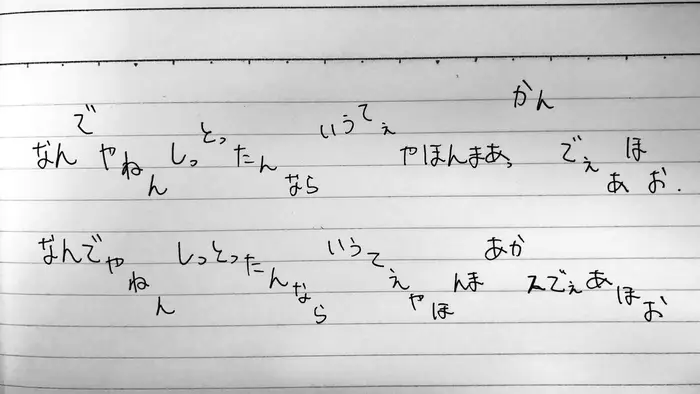 なんでやねん しっとったんなら いうてぇやほんまあ、かんでぇあほお.
なんでやねん しっとったんなら いうてえやほんまあかんでぇあほお